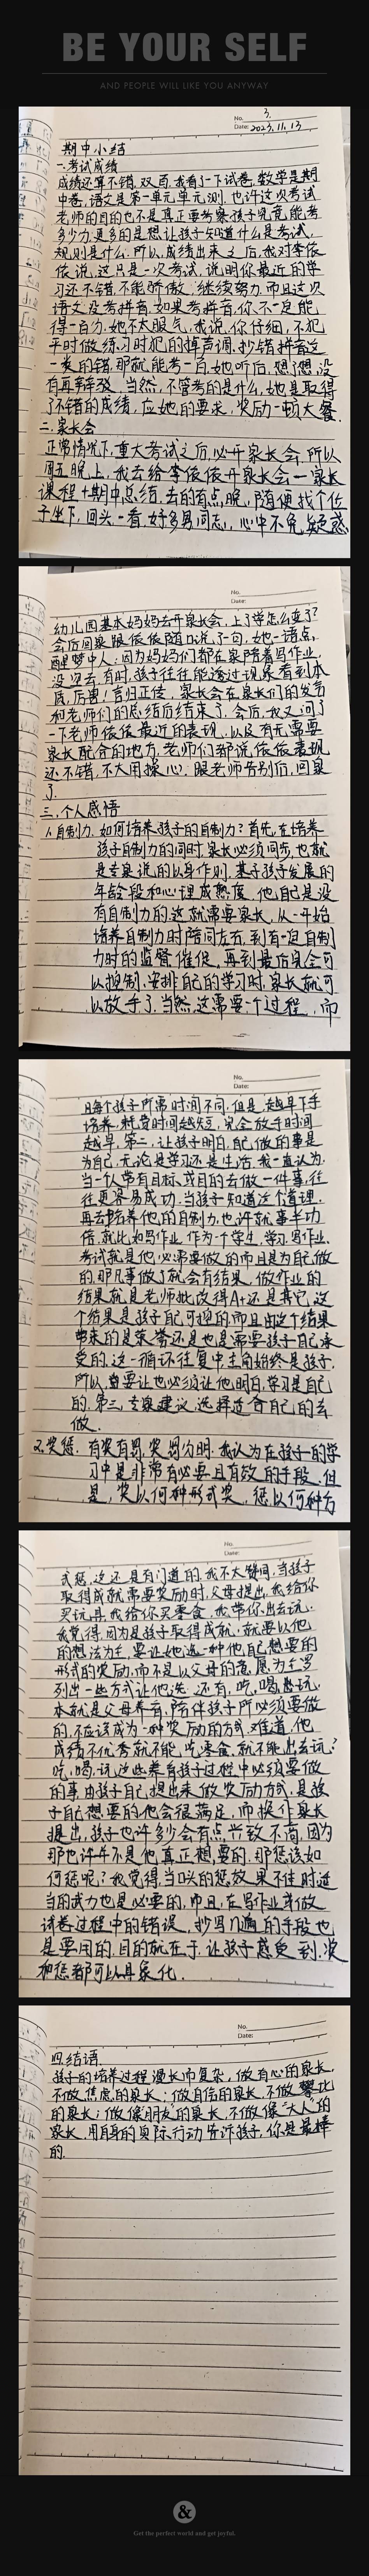 BE YOUR SELF
AND PEOPLE WILL LIKE YOU ANYWAY
No. 3.
Date: 2023.11.13
期中小结
一.考试成绩
成绩还算不错,双百,我看了一下试卷,数学是期
中卷,语文是第一单元单元测,也许这次考试
老师的目的也不是真正要考察孩子究竟能考
多少,更多的是想让孩子知道什么是考试,
规则是什么.所以,成绩出来之后,我对李依
依说,这只是一次考试,说明你最近的学
习还不错,不能骄傲,继续努力,而且这次
语文没考拼音,如果考拼音,你不一定能
得一百分,她不太服气,我说,你仔细,不犯
平时做练习时犯的掉声调.抄错拼音这
一类的错,那就能考一百,她听后,想了想,没
有再辩驳,当然,不管考的是什么,她是取得
了不错的成绩,应她的要求,奖励一顿大餐.
二.家长会
正常情况下,重大考试之后,必开家长会,所以
周五晚上,我去给李依依开家长会—家长
课程+期中总结,去的有点晚,随便找个位
子坐下,回头一看,好多男同志,心中不免疑惑
No.
Date:
幼儿园基本妈妈去开家长会,上了学怎么变了?
会后回家跟依依随口说了一句,她一语点
醒梦中人:因为妈妈们都在家陪着写作业,
没没去,有时,孩子往往能透过现象看到本
质,厉害!言归正传,家长会在家长们的发言
和老师们的总结后结束了,会后,我又问了
一下老师依依最近的表现,以及有无需要
家长配合的地方,老师们都说,依依表现
还不错,不大用操心,跟老师告别后,回家
了.
三.个人感悟
1.自制力.如何培养孩子的自制力?首先,在培养
孩子自制力的同时,家长必须同步,也就
是专家说的以身作则,基于孩子发展的
年龄段和心理成熟度,他自己是没
有自制力的,这就需要家长,从一开始
培养自制力时陪同左右,到有一定自制
力时的监督催促,再到最后完全可
以控制.安排自己的学习时,家长就可
以放手了,当然,这需要个过程,而
No.
Date:
且每个孩子所需时间不同,但是,越早下手
培养,耗费时间越短,完全放手时间
越早.第二,让孩子明白,自己做的事是
为自己,无论是学习还是生活,我一直认为,
当一个人带有目标.或目的去做一件事,往
往更容易成功,当孩子知道这个道理,
再去培养他的自制力,也许就事半功
倍,就比如写作业,作为一个学生,学习.写作业.
考试就是他必需要做的而且是为自己做
的,那凡事做了就会有结果,做作业的
结果就是老师批改得A+还是其它,这
个结果是孩子自己可控的而且由这个结果
带来的是荣誉还是也是需要孩子自己承
受的,这一循环往复中主角始终是孩子.
所以,曾要让也必须让他明白,学习是自己
的.第三,专家建议,选择适合自己的去
做.
2.奖惩.有奖有罚,奖罚分明.我认为在孩子的学
习中是非常有必要且有效的手段,但
是,奖以何种形式奖,惩以何种方
No.
Date:
式惩,这还是有门道的,我不大赞同,当孩子
取得成就需要奖励时,父母提出,我给你
买玩具,我给你买零食,我带你出去玩.
我觉得,因为是孩子取得成就,就要以他
的想法为主,要让他选一种他自己想要的
形式的奖励,而不是以父母的意愿为主罗
列出一些方式让他选,还有,吃,喝,玩,
本就是父母养育,陪伴孩子所必须要做
的,不应该成为一种奖励的方式,难道他
成绩不优秀就不能吃零食,就不能出去玩?
吃,喝,玩,这些养育孩子过程中必须要做
的事由孩子自己提出来做奖励方式,是孩
子自己想要的他会很满足,而换作家长
提出,孩子也许多少会有点兴致不高,因为
那也许并不是他真正想要的,那惩该如
何惩呢?我觉得,当口头的惩效果不佳时,适
当的武力也是必要的,而且,在写作业或做
试卷过程中的错误,抄写几遍的手段也
是要用的,目的就在于,让孩子感受到,奖
和惩都可以具象化.
No.
Date:
四.结语.
孩子的培养过程漫长而复杂,做有心的家长,
不做焦虑的家长;做自信的家长,不做攀比
的家长;做像"朋友"的家长,不做像"大人"的
家长,用自身的实际行动告诉孩子,你是最棒
的.
&
Get the perfect world and get joyful.